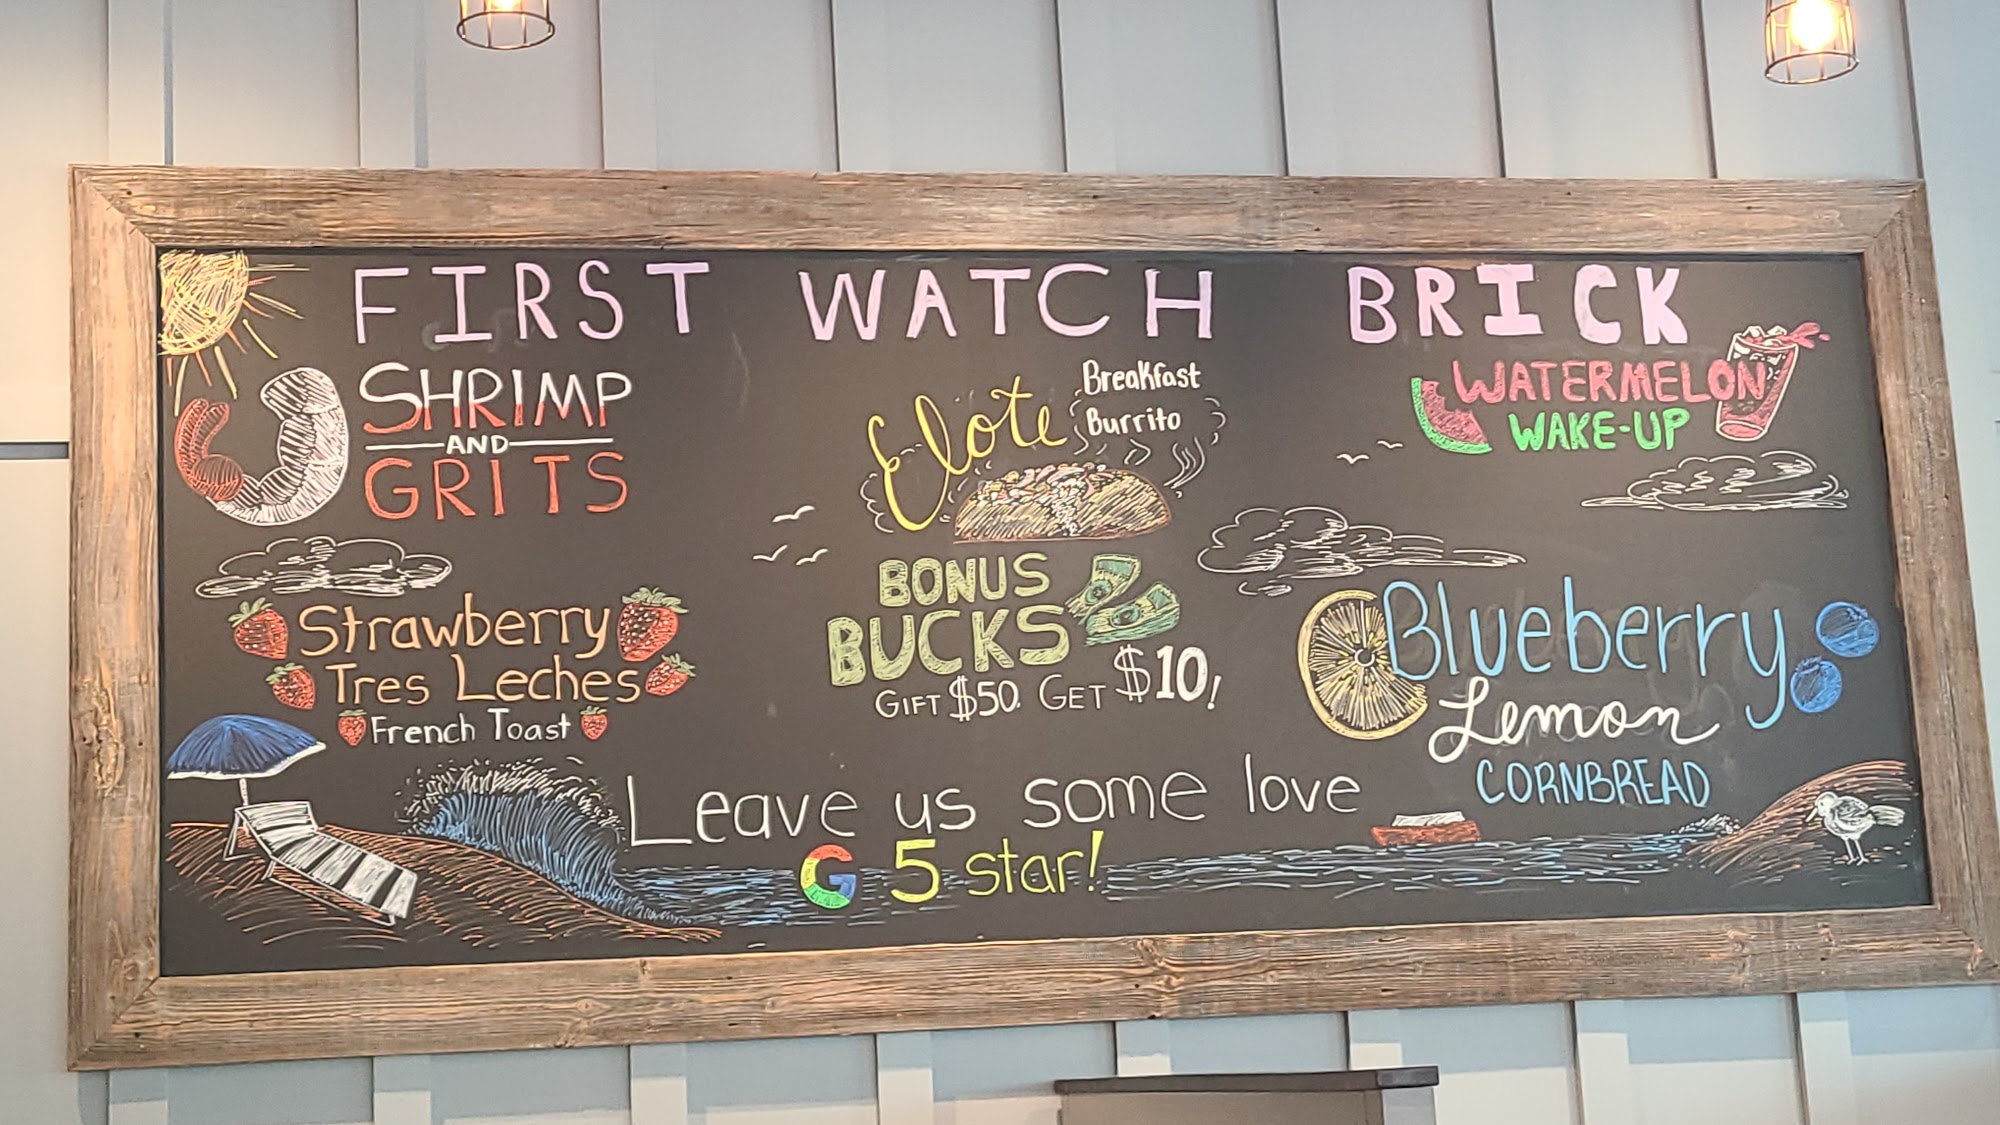 FIRST WATCH BRICK
SHRIMP
AND
GRITS
Elote
Breakfast
Burrito
WATERMELON
WAKE-UP
Strawberry
Tres Leches
French Toast
BONUS
BUCKS
GIFT $50. GET $10!
Blueberry
Lemon
CORNBREAD
Leave us some love
G 5 star!